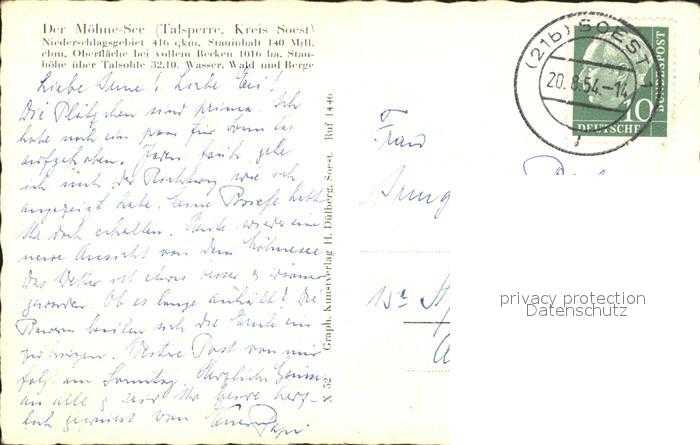 Der Möhne-See (Talsperre, Kreis Soest)
Niederschlagsgebiet 416 qkm. Stauinhalt 140 Mill.
cbm, Oberfläche bei vollem Becken 1016 ha, Stau-
höhe über Talsohle 32,10. Wasser, Wald und Berge
Liebe Anne! Liebe Evi!
Die Plätzchen sind prima. Ich
habe noch ein paar für Sonntag
aufgehoben. früh gehe
ich nach der wie ich
angezeigt habe. Briefe habt
Ihr doch erhalten. Heute wieder eine
neue Ansicht von dem Möhnesee
Das Wetter ist etwas besser u wärmer
geworden. Ob es lange anhält? Die
Bauern beeilen sich die Ernte ein-
zubringen. Weitere Post von mir
folgt am Sonntag. Herzliche Grüsse
an alle u seid Ihr beide herz-
lich gegrüsst von Euer Papi
Graph. Kunstverlag H. Dülberg, Soest. Ruf 1446
X 52
(21b) SOEST
20.8.54.-14
10
DEUTSCHE
BUNDESPOST
Frau
privacy protection
Datenschutz